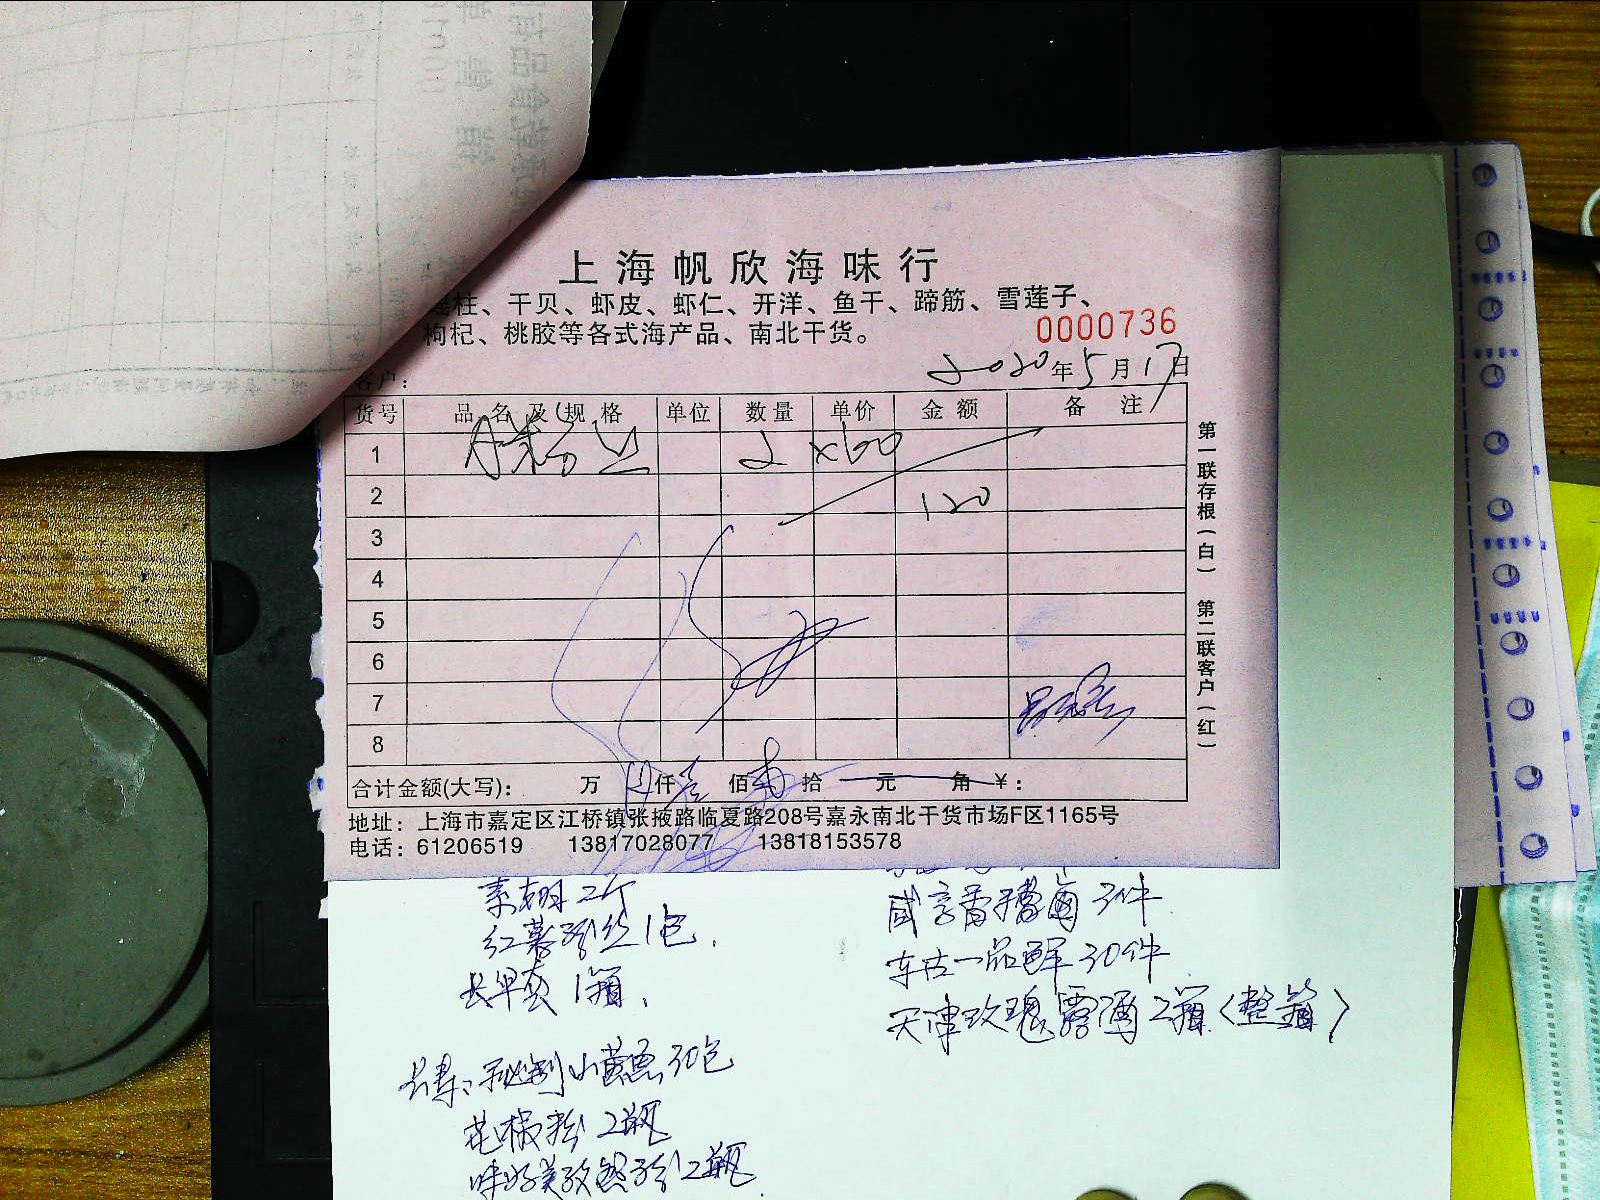 上海帆欣海味行
瑶柱、干贝、虾皮、虾仁、开洋、鱼干、蹄筋、雪莲子、
枸杞、桃胶等各式海产品、南北干货。
0000736
客户：
2020年5月17日
货号 品名及规格 单位 数量 单价 金额 备注
1 2 x60
2 120
3
4
5
6
7
8
合计金额(大写)： 万 仟壹佰 拾 元 角 ￥：
地址：上海市嘉定区江桥镇张掖路临夏路208号嘉永南北干货市场F区1165号
电话：61206519 13817028077 13818153578
第一联存根(白) 第二联客户(红)
红薯粉丝1包.
1箱.
小黄鱼30包
花椒粉2瓶
味好美孜然粉2瓶
咸亨香糟卤3件
东古一品鲜30件
天津玫瑰露酒2箱(整箱)